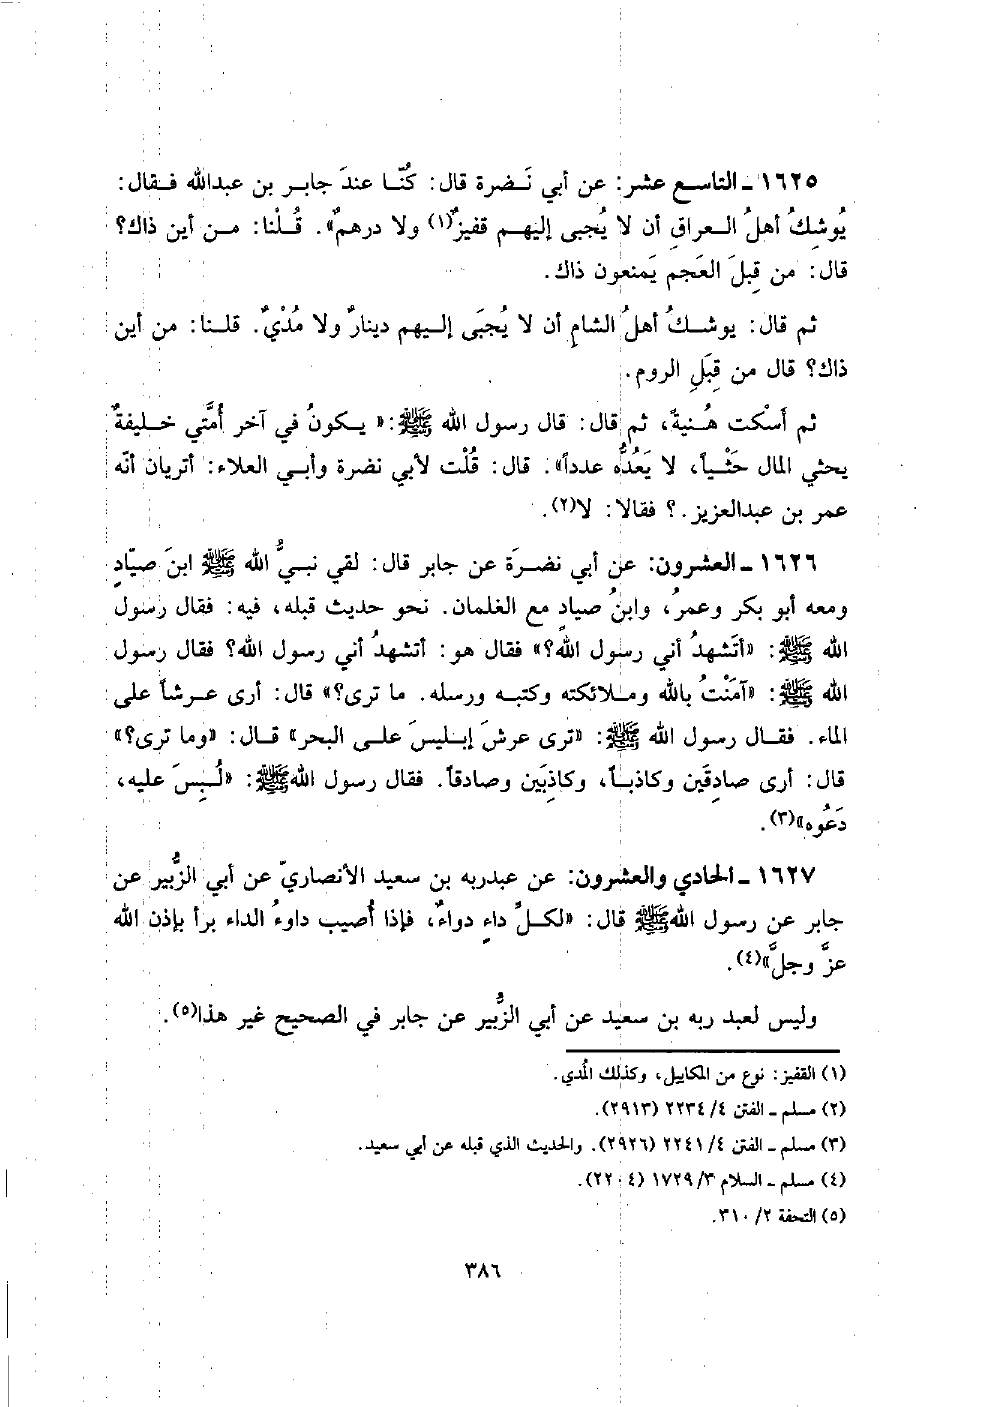 ١٦٢٥ ـ التاسع عشر: عن أبي نَـضرة قال: كُنّـا عندَ جابـر بن عبدالله فـقال:
يُوشِكُ أهلُ العـراقِ أن لا يُجبى إليهـم قفيزٌ(١) ولا درهمٌ». قُـلْنا: مـن أين ذاك؟
قال: من قِبلَ العَجم يَمنعون ذاك.
ثم قال: يوشـكُ أهلُ الشامِ أن لا يُجبَى إليهم دينارٌ ولا مُدْيٌ. قلـنا: من أين
ذاك؟ قال من قِبَلِ الروم.
ثم أَسْكت هُـنيةً، ثم قال: قال رسول الله ﷺ: « يـكونُ في آخر أُمَّتي خـليفةٌ
يحثي المال حَثْـياً، لا يَعُدُّه عدداً». قال: قُلْت لأبي نضرة وأبـي العلاء: أتريان أنّه
عمر بن عبدالعزيز.؟ فقالا: لا(٢).
١٦٢٦ ـ العشرون: عن أبي نضـرَة عن جابر قال: لقي نبـيُّ الله ﷺ ابنَ صيّادٍ
ومعه أبو بكر وعمرُ، وابنُ صيادٍ مع الغلمان. نحو حديث قبله، فيه: فقال رسول
الله ﷺ: «أتَشهدُ أني رسول الله؟» فقال هو: أتشهدُ أني رسول الله؟ فقال رسول
الله ﷺ: «آمَنْتُ بالله ومـلائكته وكتبـه ورسله. ما ترى؟» قال: أرى عـرشاً على
الماء. فقـال رسول الله ﷺ: «ترى عرشَ إبـليسَ علـى البحر» قـال: «وما ترى؟»
قال: أرى صادِقَين وكاذبـاً، وكاذِبَين وصادقاً. فقال رسول الله ﷺ: «لُـبِسَ عليه،
دَعُوه»(٣).
١٦٢٧ ـ الحادي والعشرون: عن عبدربه بن سعيد الأنصاريّ عن أبي الزُّبير عن
جابر عن رسول الله ﷺ قال: «لكـلِّ داءٍ دواءٌ، فإذا أُصيب دواءُ الداء برأ بإذن الله
عزَّ وجلَّ»(٤).
وليس لعبد ربه بن سعيد عن أبي الزُّبير عن جابر في الصحيح غير هذا(٥).
(١) القفيز: نوع من المكاييل، وكذلك المُدي.
(٢) مسلم ـ الفتن ٤/ ٢٢٣٤ (٢٩١٣).
(٣) مسلم ـ الفتن ٤/ ٢٢٤١ (٢٩٢٦). والحديث الذي قبله عن أبي سعيد.
(٤) مسلم ـ السلام ٣/ ١٧٢٩ (٢٢٠٤).
(٥) التحفة ٢/ ٣١٠.
٣٨٦